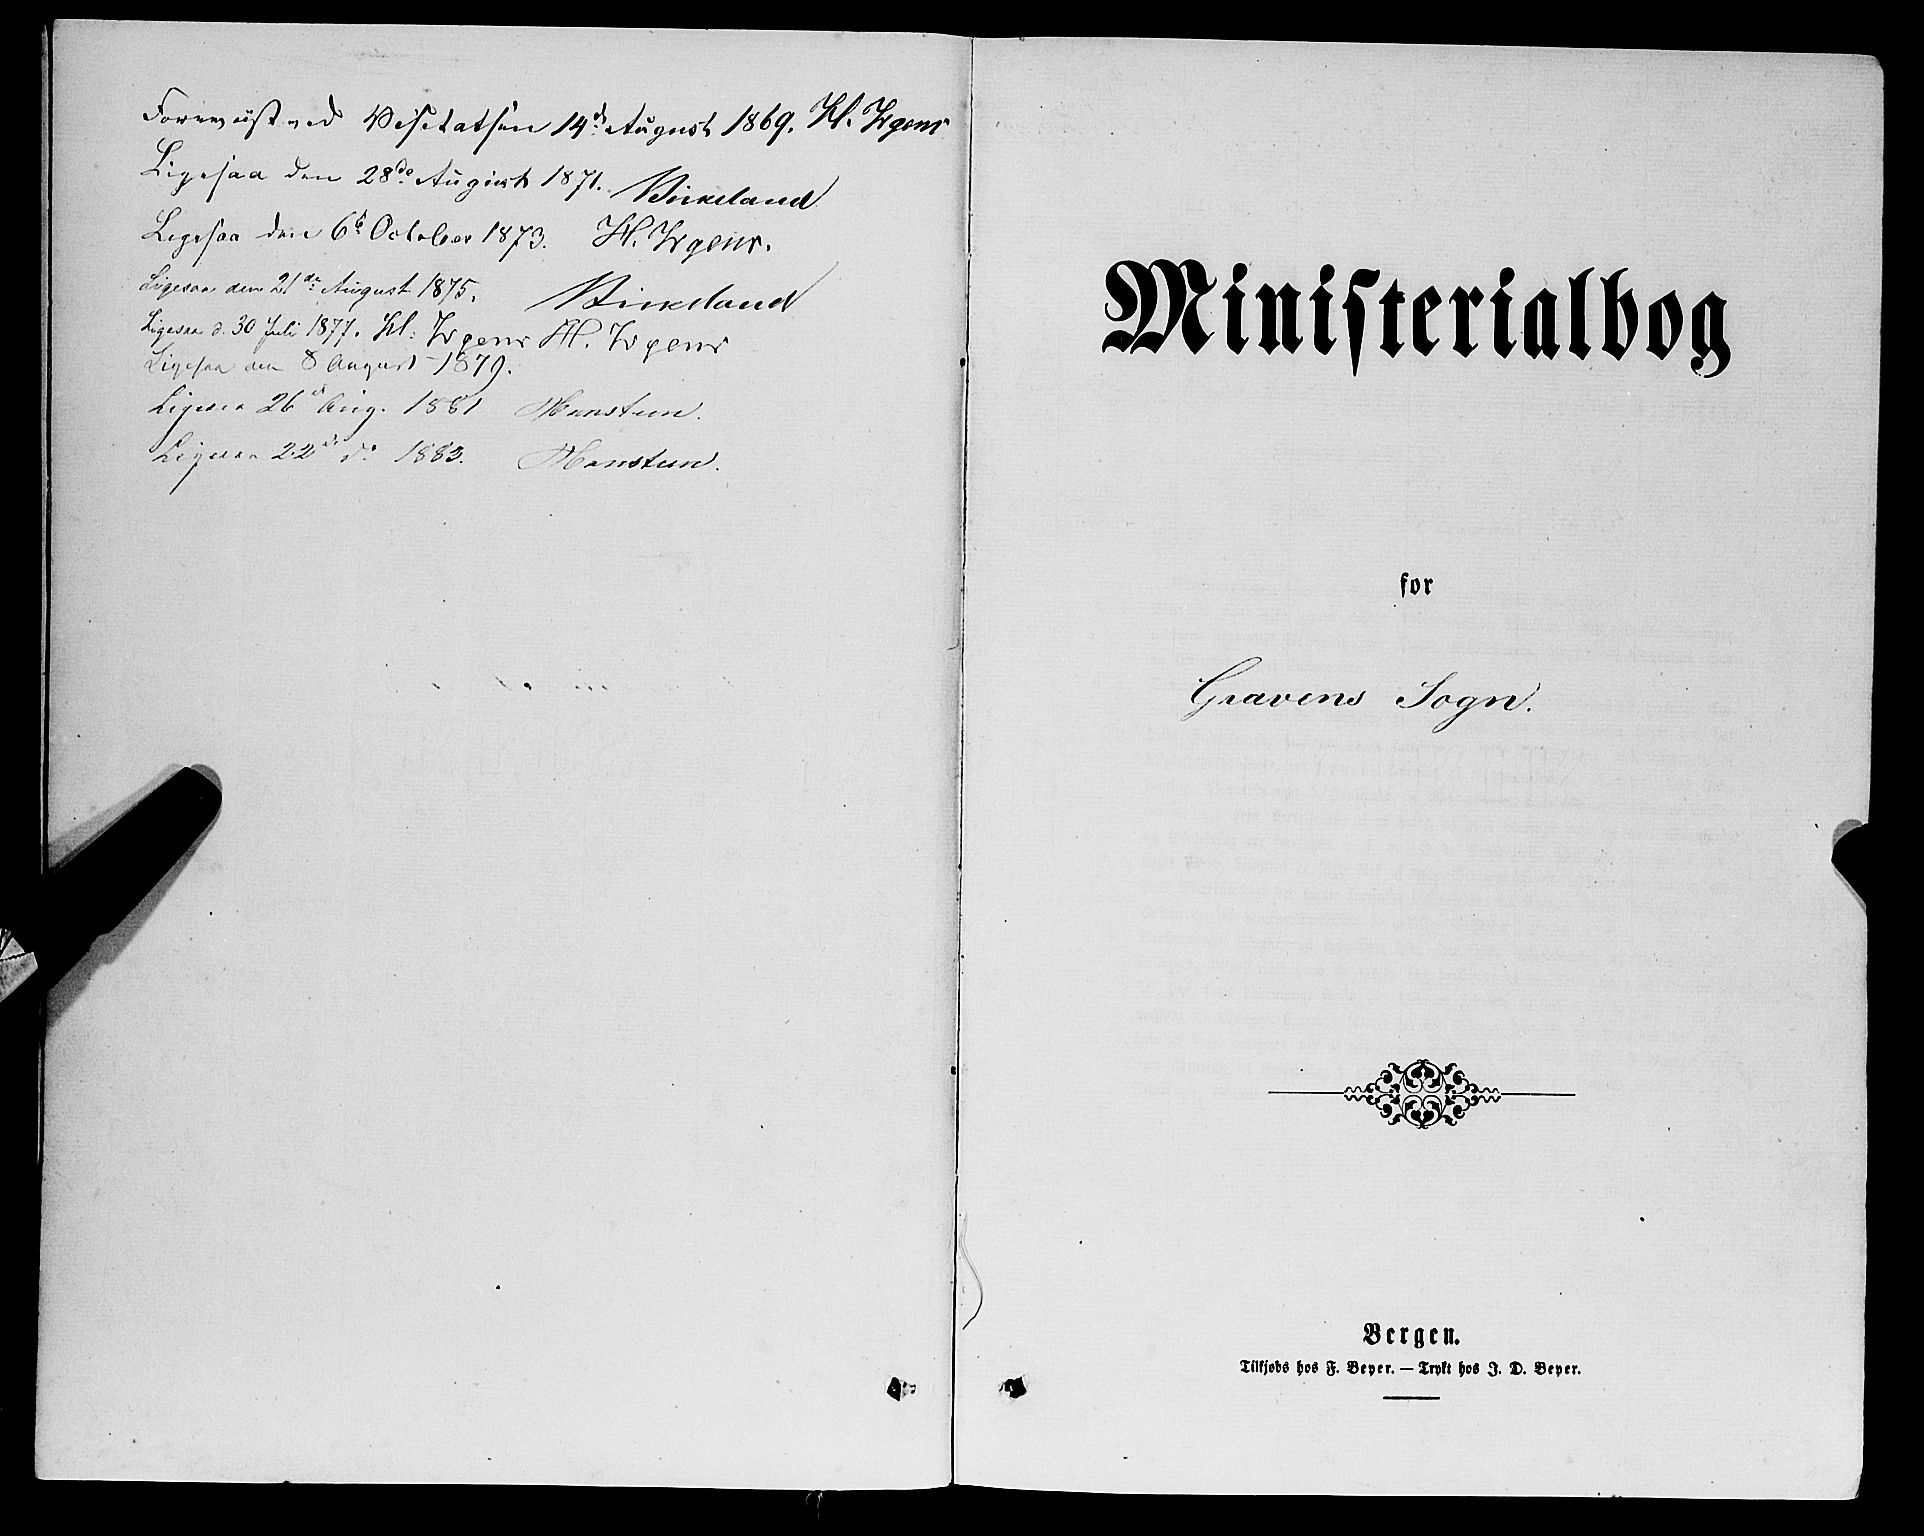 Foreviist ved Visitatsen 14d August 1869. Kl. Irgens
Ligesaa den 28de August 1871. Birkeland
Ligesaa den 6te October 1873. Kl. Irgens.
Ligesaa den 21de August 1875. Birkeland
Ligesaa d. 30 Juli 1877. Kl. Irgens Kl. Irgens
Ligesaa den 8 August 1879.
Ligesaa 26d Aug. 1881
Ligesaa 22de do 1883.
Ministerialbog
for
Gravens Sogn.
Bergen.
Tilkjøbs hos F. Beyer. — Trykt hos J. D. Beyer.